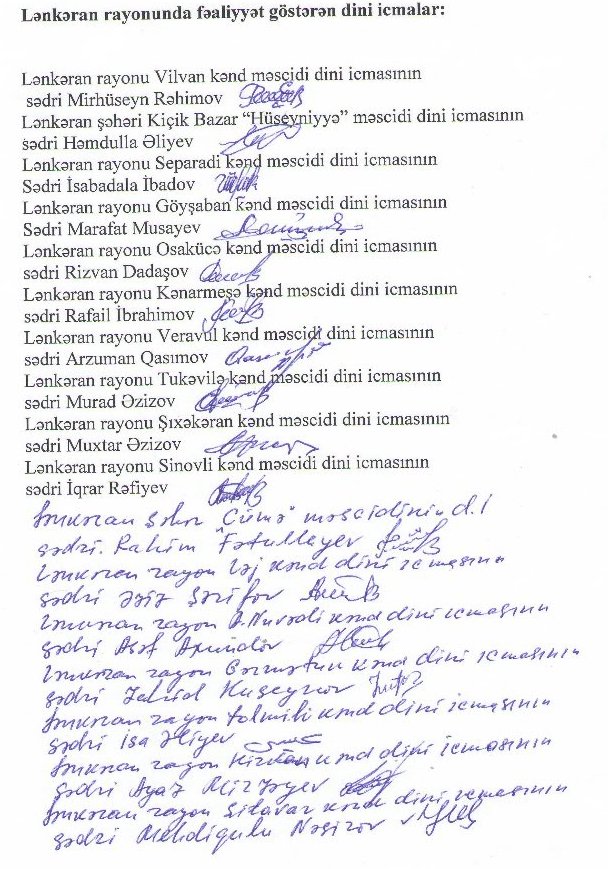 Lənkəran rayonunda fəaliyyət göstərən dini icmalar:
Lənkəran rayonu Vilvan kənd məscidi dini icmasının
sədri Mirhüseyn Rəhimov
Lənkəran şəhəri Kiçik Bazar “Hüseyniyyə” məscidi dini icmasının
sədri Həmdulla Əliyev
Lənkəran rayonu Separadi kənd məscidi dini icmasının
Sədri İsabadala İbadov
Lənkəran rayonu Göyşaban kənd məscidi dini icmasının
Sədri Marafat Musayev
Lənkəran rayonu Osakücə kənd məscidi dini icmasının
sədri Rizvan Dadaşov
Lənkəran rayonu Kənarmeşə kənd məscidi dini icmasının
sədri Rafail İbrahimov
Lənkəran rayonu Veravul kənd məscidi dini icmasının
sədri Arzuman Qasımov
Lənkəran rayonu Tukəvilə kənd məscidi dini icmasının
sədri Murad Əzizov
Lənkəran rayonu Şıxəkəran kənd məscidi dini icmasının
sədri Muxtar Əzizov
Lənkəran rayonu Sinovli kənd məscidi dini icmasının
sədri İqrar Rəfiyev
Lənkəran şəhər "Cümə" məscidinin d.i
sədri. Rahim Fətullayev
Lənkəran rayon Ləj kənd dini icmasının
sədri Əziz Şərifov
Lənkəran rayon kənd dini icmasının
sədri Axundov
Lənkəran rayon kənd dini icmasının
sədri Zahid Huseynov
Lənkəran rayon kənd dini icmasının
sədri İsa Əliyev
Lənkəran rayon kənd dini icmasının
sədri Ayaz Mirzəyev
Lənkəran rayon Sütavar kənd dini icmasının
sədri Mehdiqulu Nəsirov